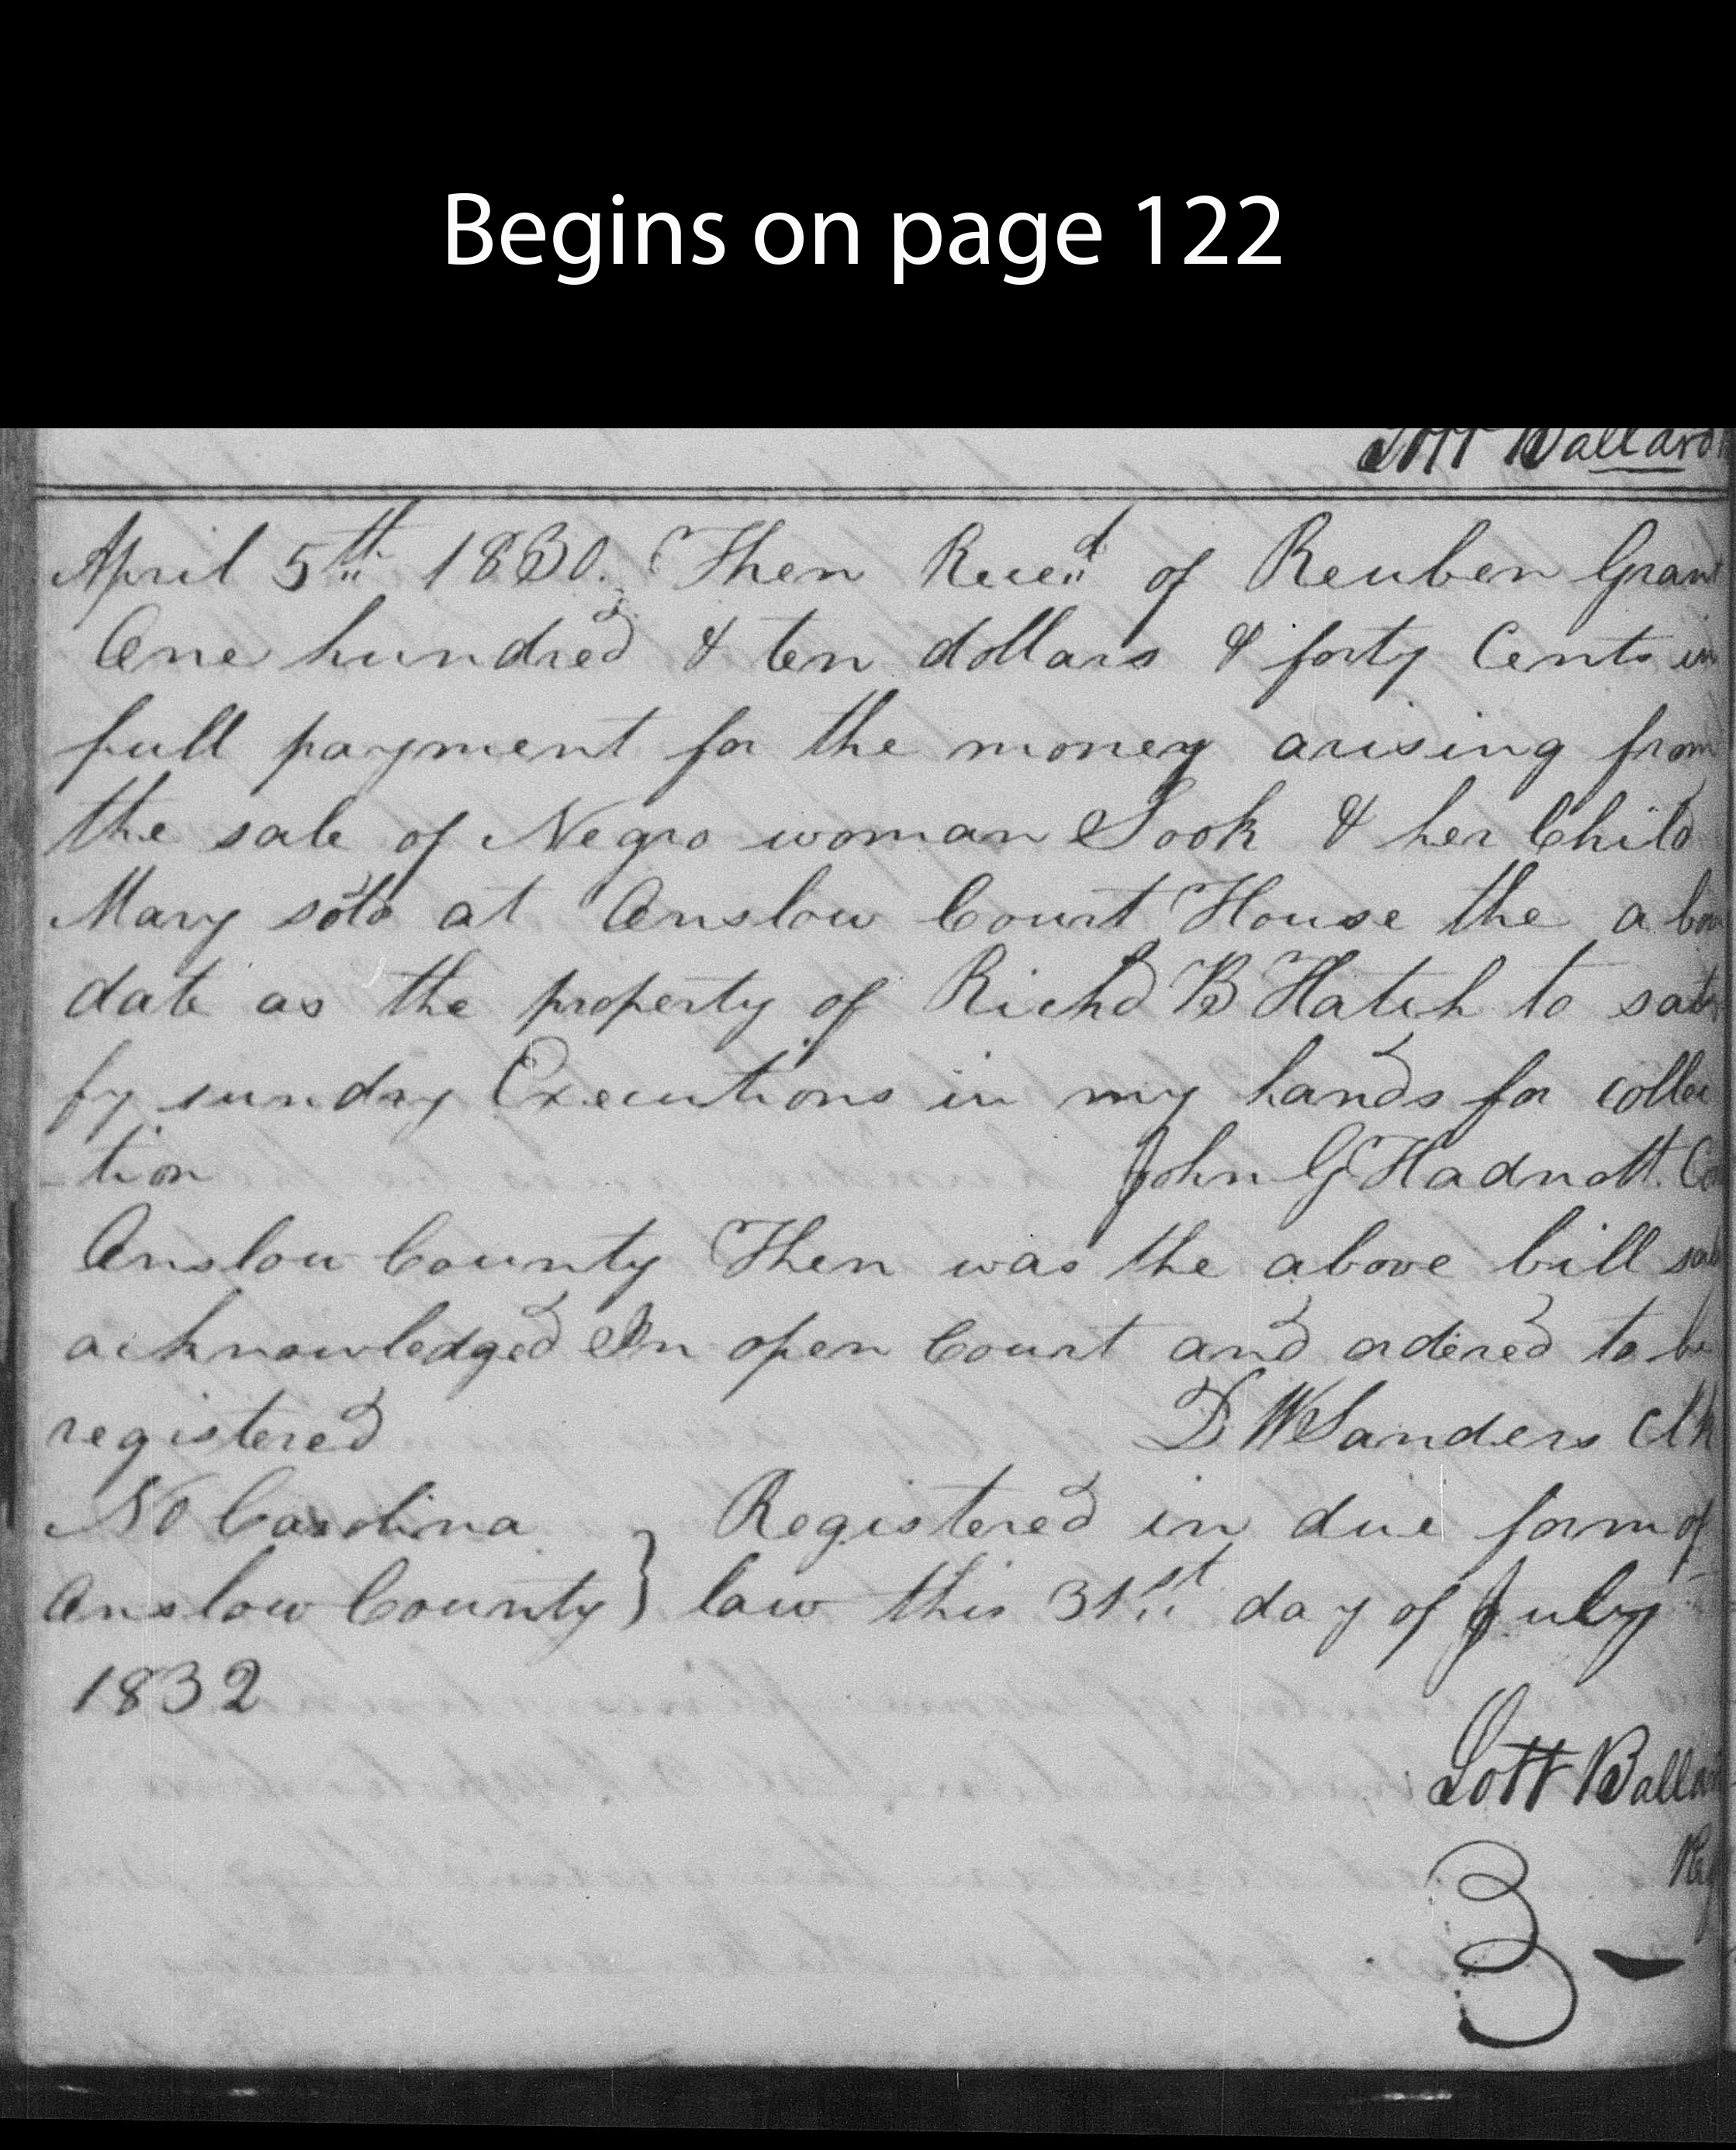 Begins on page 122
Lott Ballard
April 5th 1830. Then Reced of Reuben Grant
One hundred & ten dollars & forty Cents in
full payment for the money arising from
the sale of Negro woman Sook & her Child
Mary sold at Onslow Court House the abov
date as the property of Richd B Hatch to satis
fy sunday Executions in my hands for collec
-tion John G Hadnott. Co
Onslow County Then was the above bill sale
acknowledged In open Court and ordered to be
registered D. W Sanders Clk
No Carolina } Registered in due form of
Onslow County } law this 31st day of July
1832
Lott Ballar
Reg